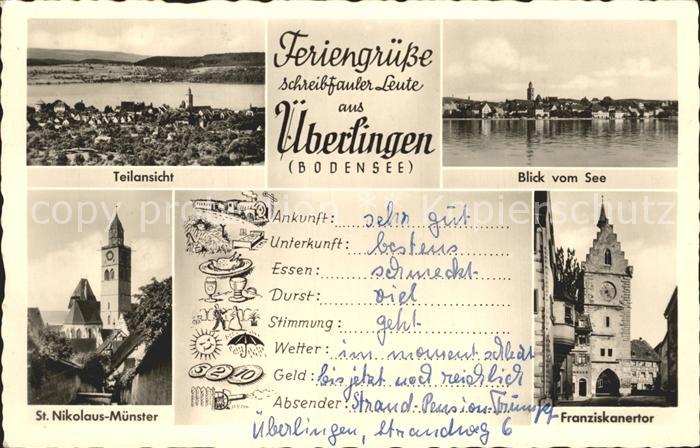 Feriengrüße
schreibfauler Leute
aus
Überlingen
(BODENSEE)
Teilansicht
Blick vom See
Ankunft: sehr gut
Unterkunft: bestens
Essen: schmeckt
Durst: viel
Stimmung: geht
Wetter: im moment schlecht
Geld: bis jetzt noch reichlich
5 2 10
Absender: Strand-Pension-
Überlingen, Strandweg 6
St. Nikolaus-Münster
Franziskanertor